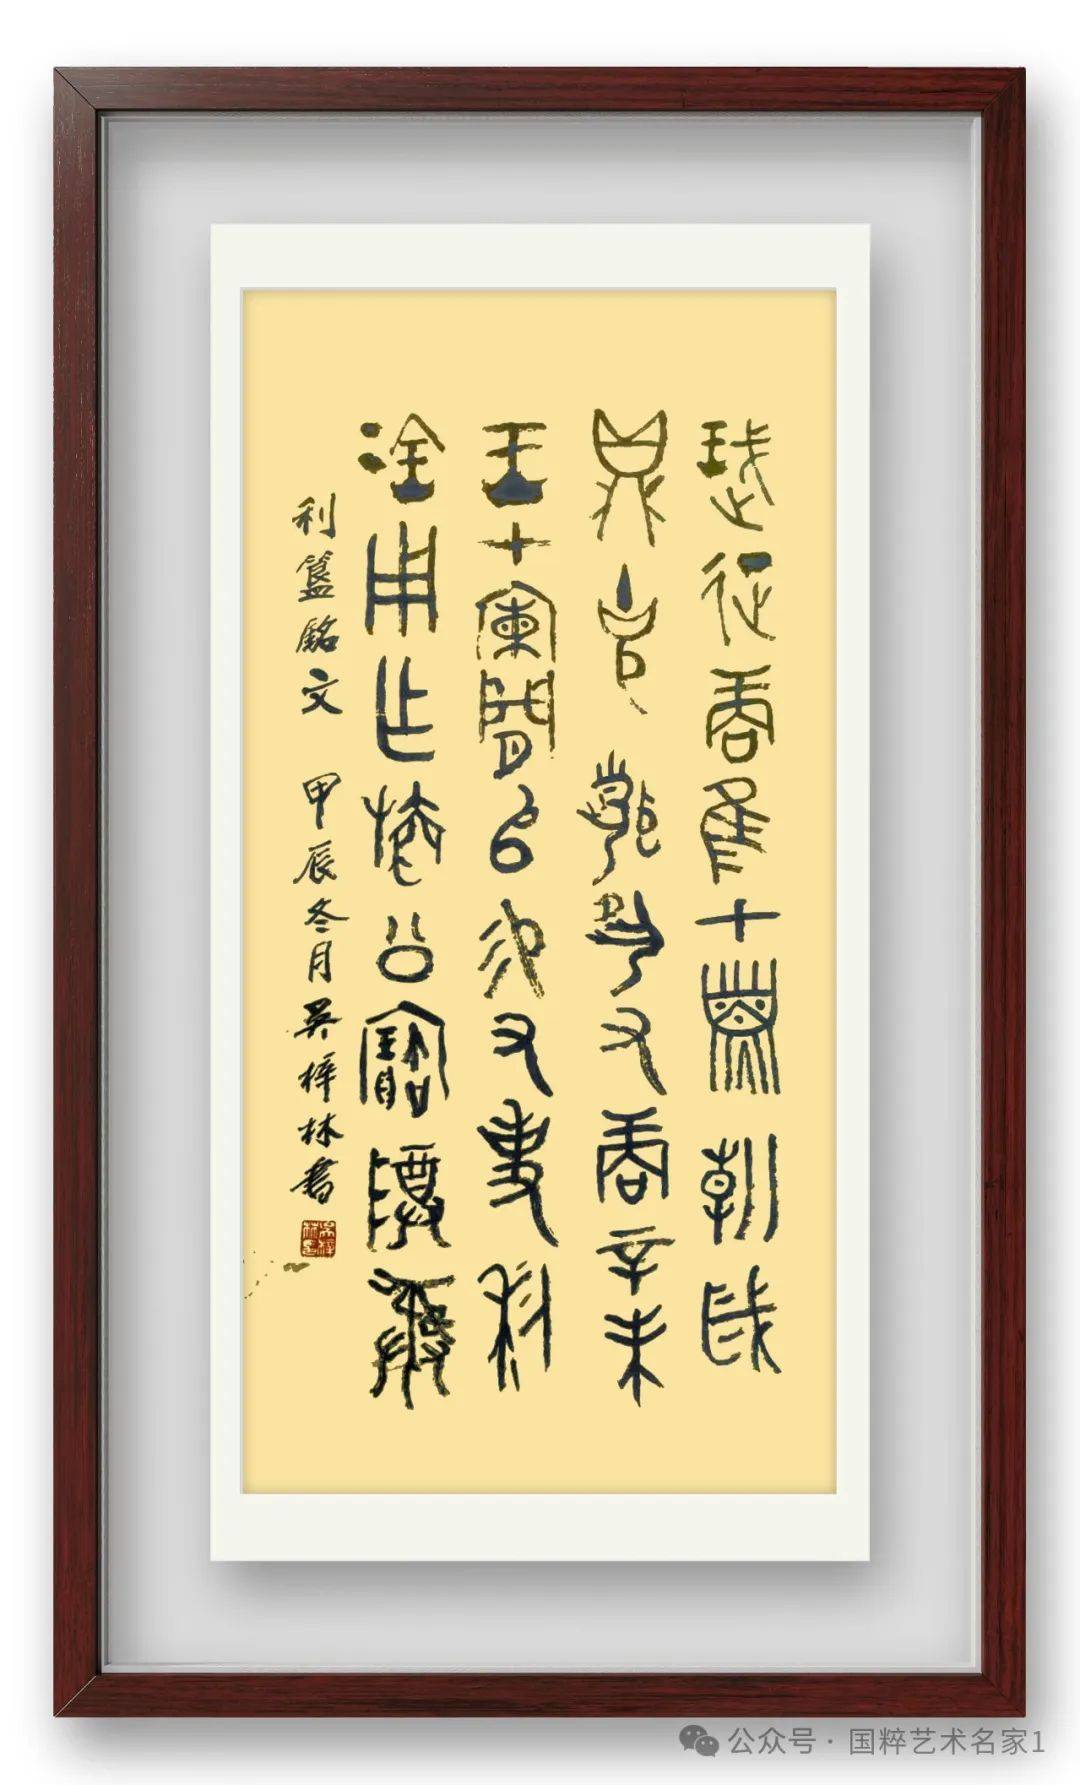 珷征商隹甲子朝歲
鼎克聞夙又商辛未
王才闌𠂤易又事利
金用乍旜公寶尊彝
利簋銘文 甲辰冬月吴梓林書
公众号 · 国粹艺术名家1